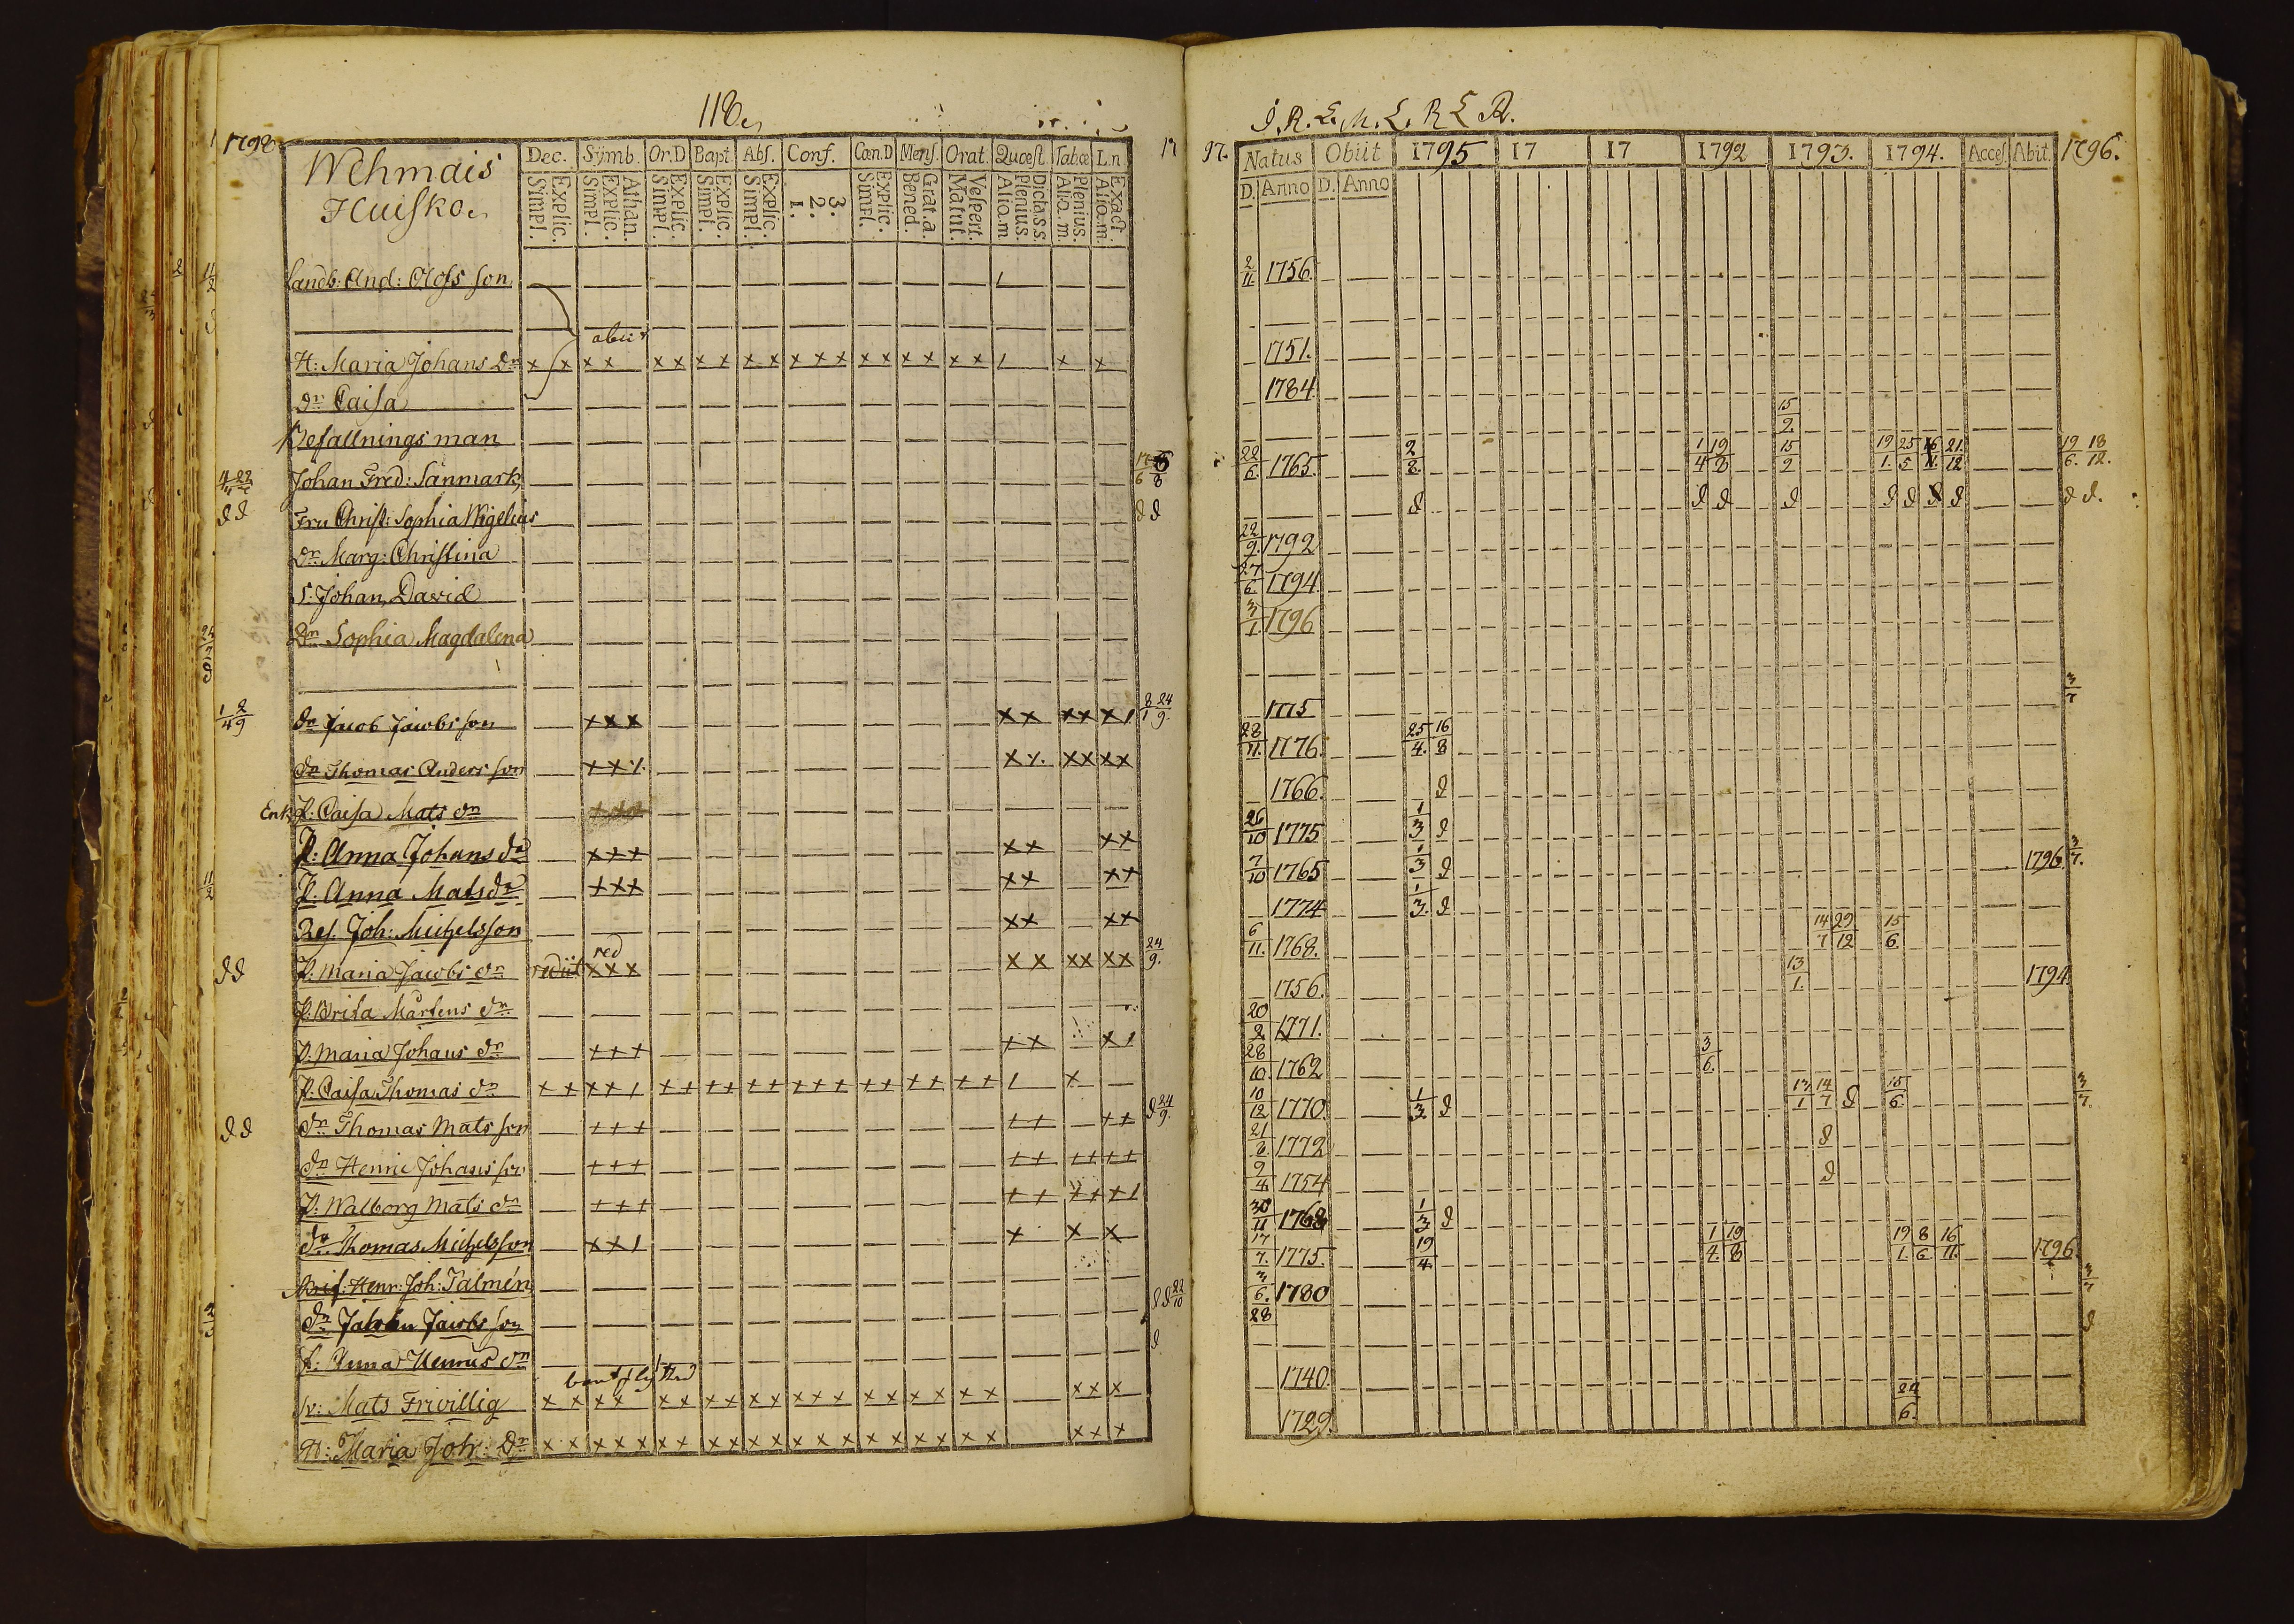 118.
1798
Wehmais
Huisko.
Dec. Sÿmb. Or.D Bapt. Abs. Conf. Cœn.D Mens. Orat. Quœst. Tabœ L.n
Simpl. Explic. Simpl. Explic. Athan. Simpl. Explic. Simpl. Explic. Simpl. Explic. 1. 2. 3. Simpl. Explic. Bened. Grat.a. Matut. Vespert. Alio.m Plenius. Dicta.s.s Alio.m. Plenius. Alio.m. Exact
Landb: And: Olofs son
abiit
H: Maria Johans dr
dr Caisa
Befallnings man
Johan Fred: Sanmark
Fru Christ: Sophia Wigelius
Dr Marg: Christina
S: Johan David
Dr Sophia Magdalena
dr Jacob Jacobsson
dr Thomas Anders son
Enk. P: Caisa Mats dr
P: Anna Johans dr
P: Anna Mats dr
Ref. Joh: Michelsson
red
P: Maria Jacobs dr rediit
P: Brita Mårtens dr
P: Maria Johans dr
P: Caisa Thomas dr
dr Thomas Mats son
dr Henric Johans son
P: Walborg Mats dr
dr Thomas Michelsson
Henr: Joh: Talmén
dr Jacobsson
P: Anna Henrics dr
Sv: Mats Frivillig
H: Maria Joh: Dr
17 97.
Natus Obiit 1795 17 17 1792 1793. 1794. Acces. Abit. 1796.
D. Anno D. Anno
2/11. 1756.
1751.
1784
22/6. 1765. 2/8. 1/4 19/8 15/2 19/1. 25/5 16/11. 21/12 19/6. 18/12.
d d d d d d d d d d.
22/9. 1792
27/6. 1794
3/1. 1796
3/7
1775
28/11. 1776. 25/4. 16/8
1766. d
26/10 1775 1/3 d
7/10 1765 1/3 d 1796. 3/7.
1774 1/3. d
6/11. 1768. 14/7 29/12 15/6.
1756. 13/1. 1794
20/2 1771.
28/10. 1762 3/6.
10/12 1770. 1/3 d 13/1 14/7 d 15/6. 3/7.
21/8. 1772 d
9/4. 1754 d
30/11 1768 1/3 d
17/7. 1775. 19/4. 1/4. 19/8 19/1. 8/6. 16/11. 1796.
3/6. 1780 3/7
28 d
1740.
1729. 24/6.